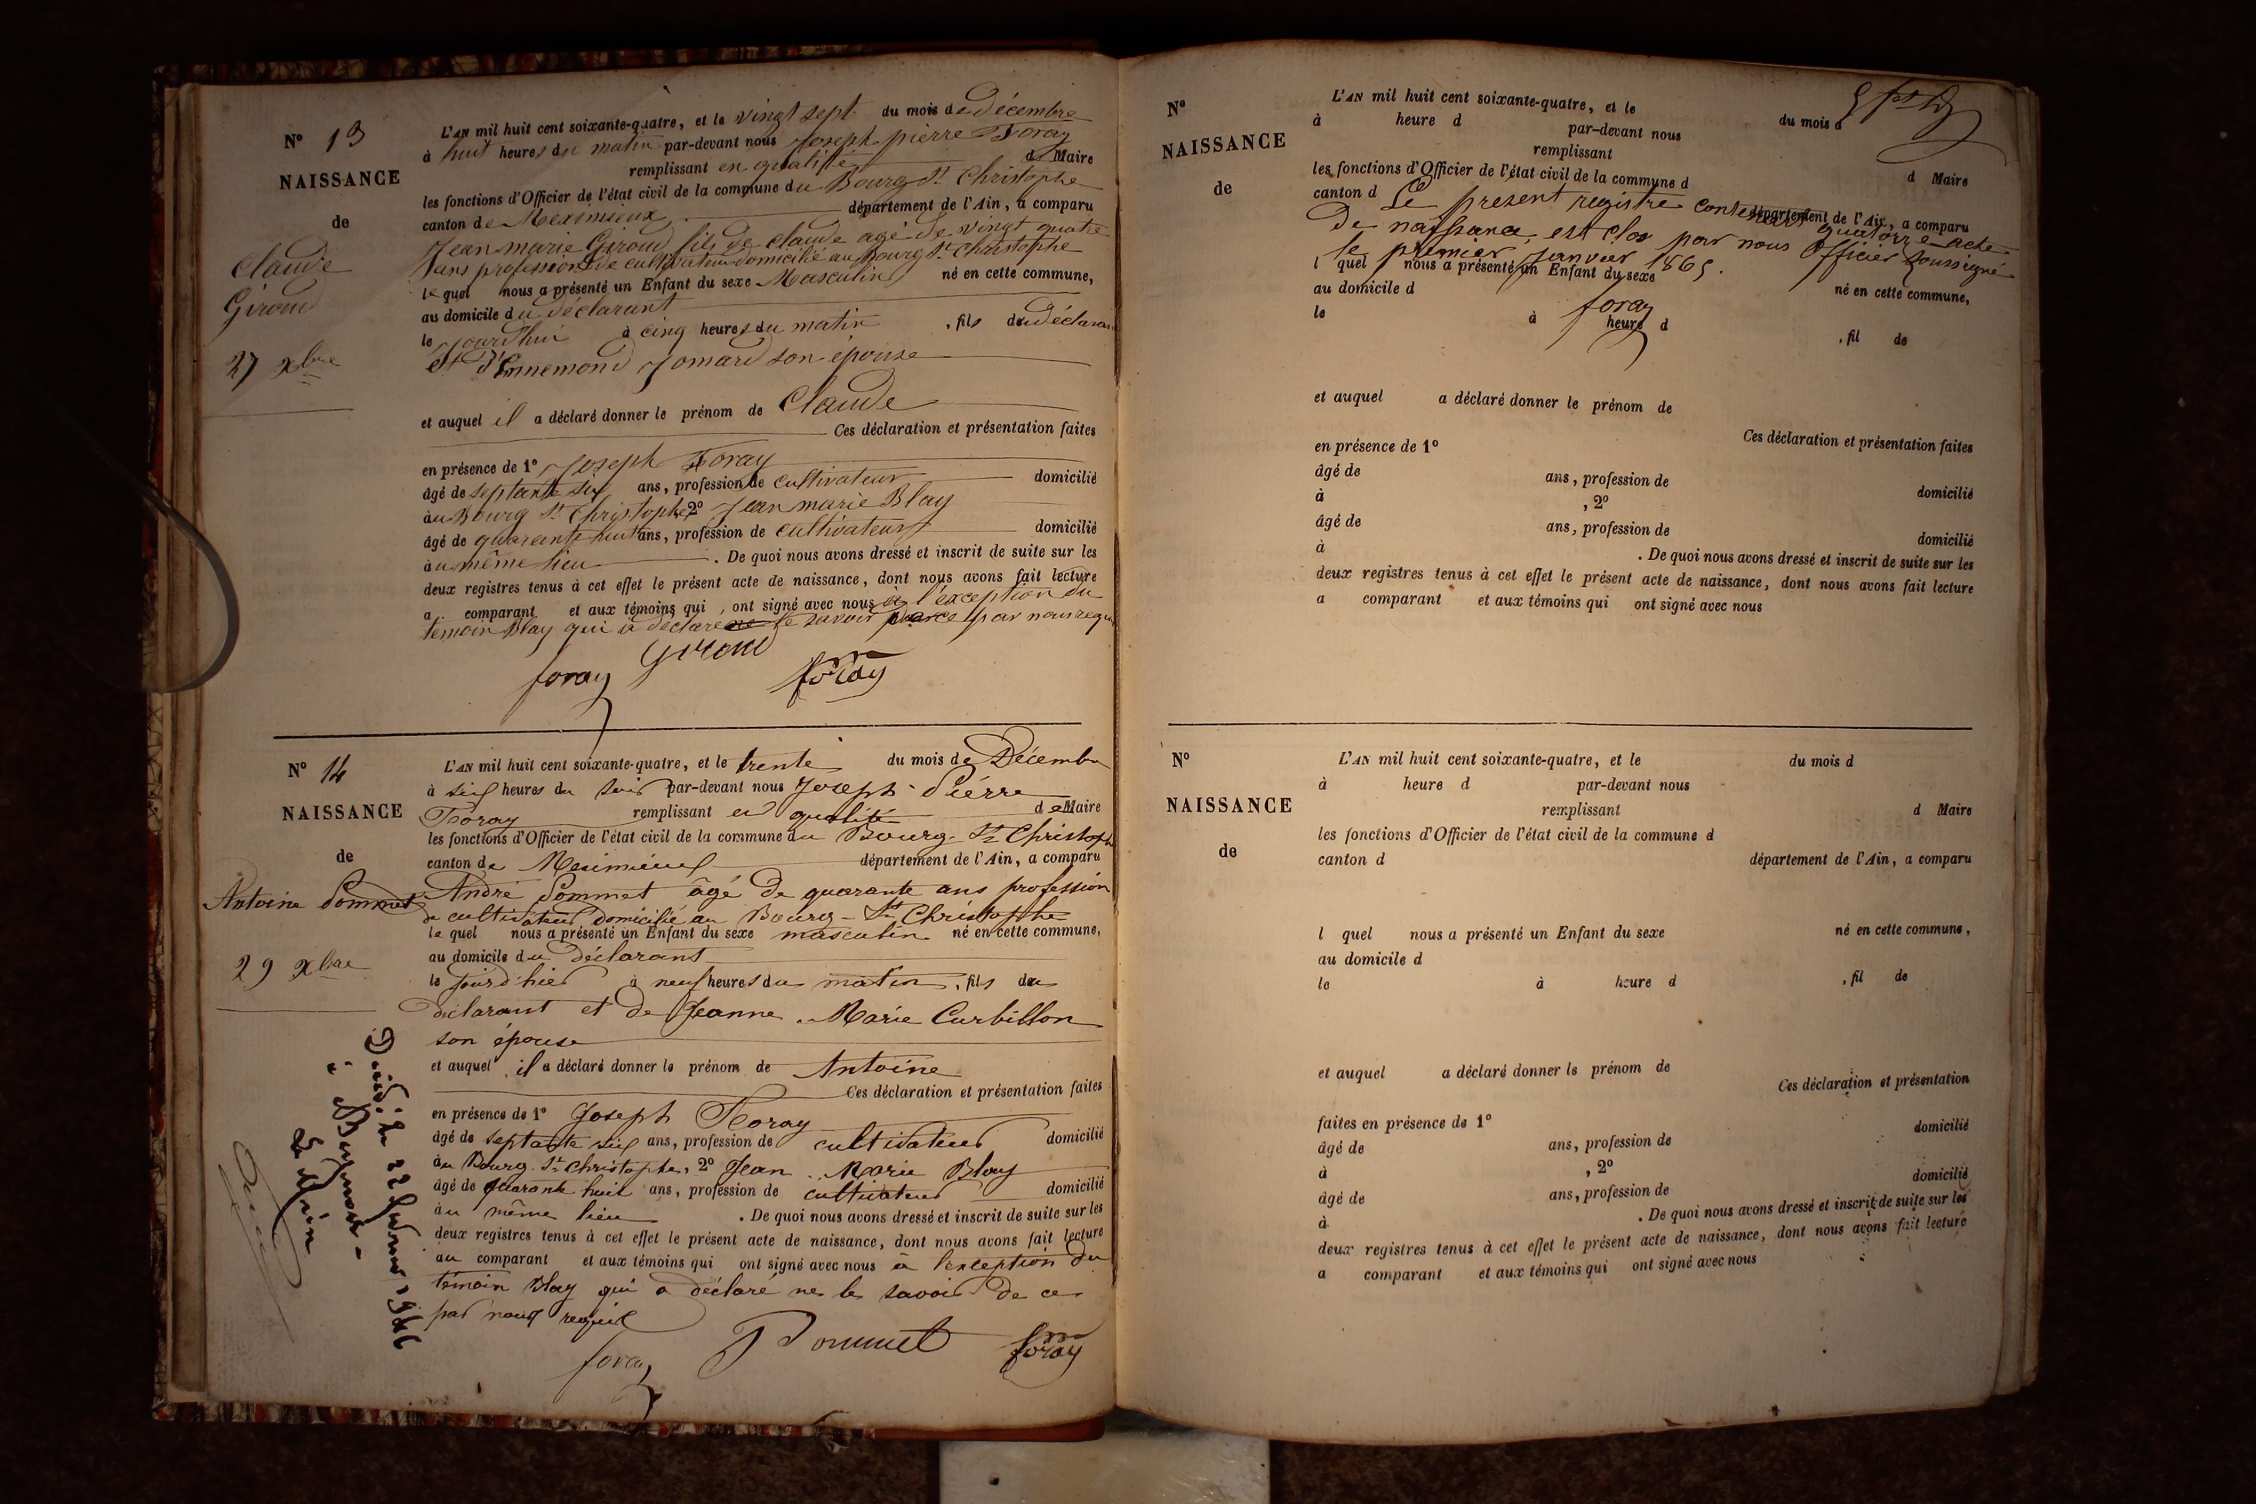 N° 13
NAISSANCE
de
Claude
Giroud
27 xbre
L'AN mil huit cent soixante-quatre, et le vingt sept du mois de décembre
à huit heures du matin par-devant nous Joseph pierre Foray
remplissant en qualité de Maire
les fonctions d'Officier de l'état civil de la commune du Bourg St Christophe
canton de Meximieux département de l'Ain, a comparu
Jean marie Giroud fils de claude agé de vingt quatre
ans profession de cultivateur domicilié au Bourg St Christophe
lequel nous a présenté un Enfant du sexe Masculin né en cette commune,
au domicile du déclarant
le jourd'hui à cinq heures du matin, fils du déclarant
et d'Ennemond Jomard son épouse
et auquel il a déclaré donner le prénom de Claude
Ces déclaration et présentation faites
en présence de 1° Joseph Foray
âgé de septante six ans, profession de cultivateur domicilié
au Bourg St Christophe, 2° Jean marie Blay
âgé de quarante huit ans, profession de cultivateur domicilié
au même lieu. De quoi nous avons dressé et inscrit de suite sur les
deux registres tenus à cet effet le présent acte de naissance, dont nous avons fait lecture
a comparant et aux témoins qui, ont signé avec nous a l'exception du
témoin Blay qui a déclaré ne le savoir par nous requis
foray Giroud foray
N° 14
NAISSANCE
de
Antoine Pommet
29 xbre
L'AN mil huit cent soixante-quatre, et le trente du mois de Décembre
à six heures du soir par-devant nous Joseph Pierre
Foray remplissant en qualité de Maire
les fonctions d'Officier de l'état civil de la commune du Bourg St Christophe
canton de Meximieux département de l'Ain, a comparu
André Pommet âgé de quarante ans profession
de cultivateur domicilié au Bourg-St Christophe
lequel nous a présenté un Enfant du sexe masculin né en cette commune,
au domicile du déclarant
le jour d'hier à neuf heures du matin, fils du
déclarant et de Jeanne Marie Curbillon
son épouse
et auquel il a déclaré donner le prénom de Antoine
Ces déclaration et présentation faites
en présence de 1° Joseph Foray
âgé de septante six ans, profession de cultivateur domicilié
au Bourg St Christophe, 2° Jean Marie Blay
âgé de quarante huit ans, profession de cultivateur domicilié
au même lieu. De quoi nous avons dressé et inscrit de suite sur les
deux registres tenus à cet effet le présent acte de naissance, dont nous avons fait lecture
au comparant et aux témoins qui ont signé avec nous à l'exception du
témoin Blay qui a déclaré ne le savoir de ce
par nous requis
foray Pommet foray
Décédé le 22
à
N°
NAISSANCE
de
L'AN mil huit cent soixante-quatre, et le du mois d
à heure d par-devant nous
remplissant d Maire
les fonctions d'Officier de l'état civil de la commune d
canton d département de l'Ain, a comparu
Le present registre contenant quatorze acte
De naissance est clos par nous Officier soussigné
le premier janvier 1865.
l quel nous a présenté un Enfant du sexe né en cette commune,
au domicile d
foray
le à heure d , fil de
et auquel a déclaré donner le prénom de
Ces déclaration et présentation faites
en présence de 1°
âgé de ans, profession de domicilié
à , 2°
âgé de ans, profession de domicilié
à . De quoi nous avons dressé et inscrit de suite sur les
deux registres tenus à cet effet le présent acte de naissance, dont nous avons fait lecture
a comparant et aux témoins qui ont signé avec nous
N°
NAISSANCE
de
L'AN mil huit cent soixante-quatre, et le du mois d
à heure d par-devant nous
remplissant d Maire
les fonctions d'Officier de l'état civil de la commune d
canton d département de l'Ain, a comparu
l quel nous a présenté un Enfant du sexe né en cette commune,
au domicile d
le à heure d , fil de
et auquel a déclaré donner le prénom de
Ces déclaration et présentation
faites en présence de 1°
âgé de ans, profession de domicilié
à , 2°
âgé de ans, profession de domicilié
à . De quoi nous avons dressé et inscrit de suite sur les
deux registres tenus à cet effet le présent acte de naissance, dont nous avons fait lecture
a comparant et aux témoins qui ont signé avec nous